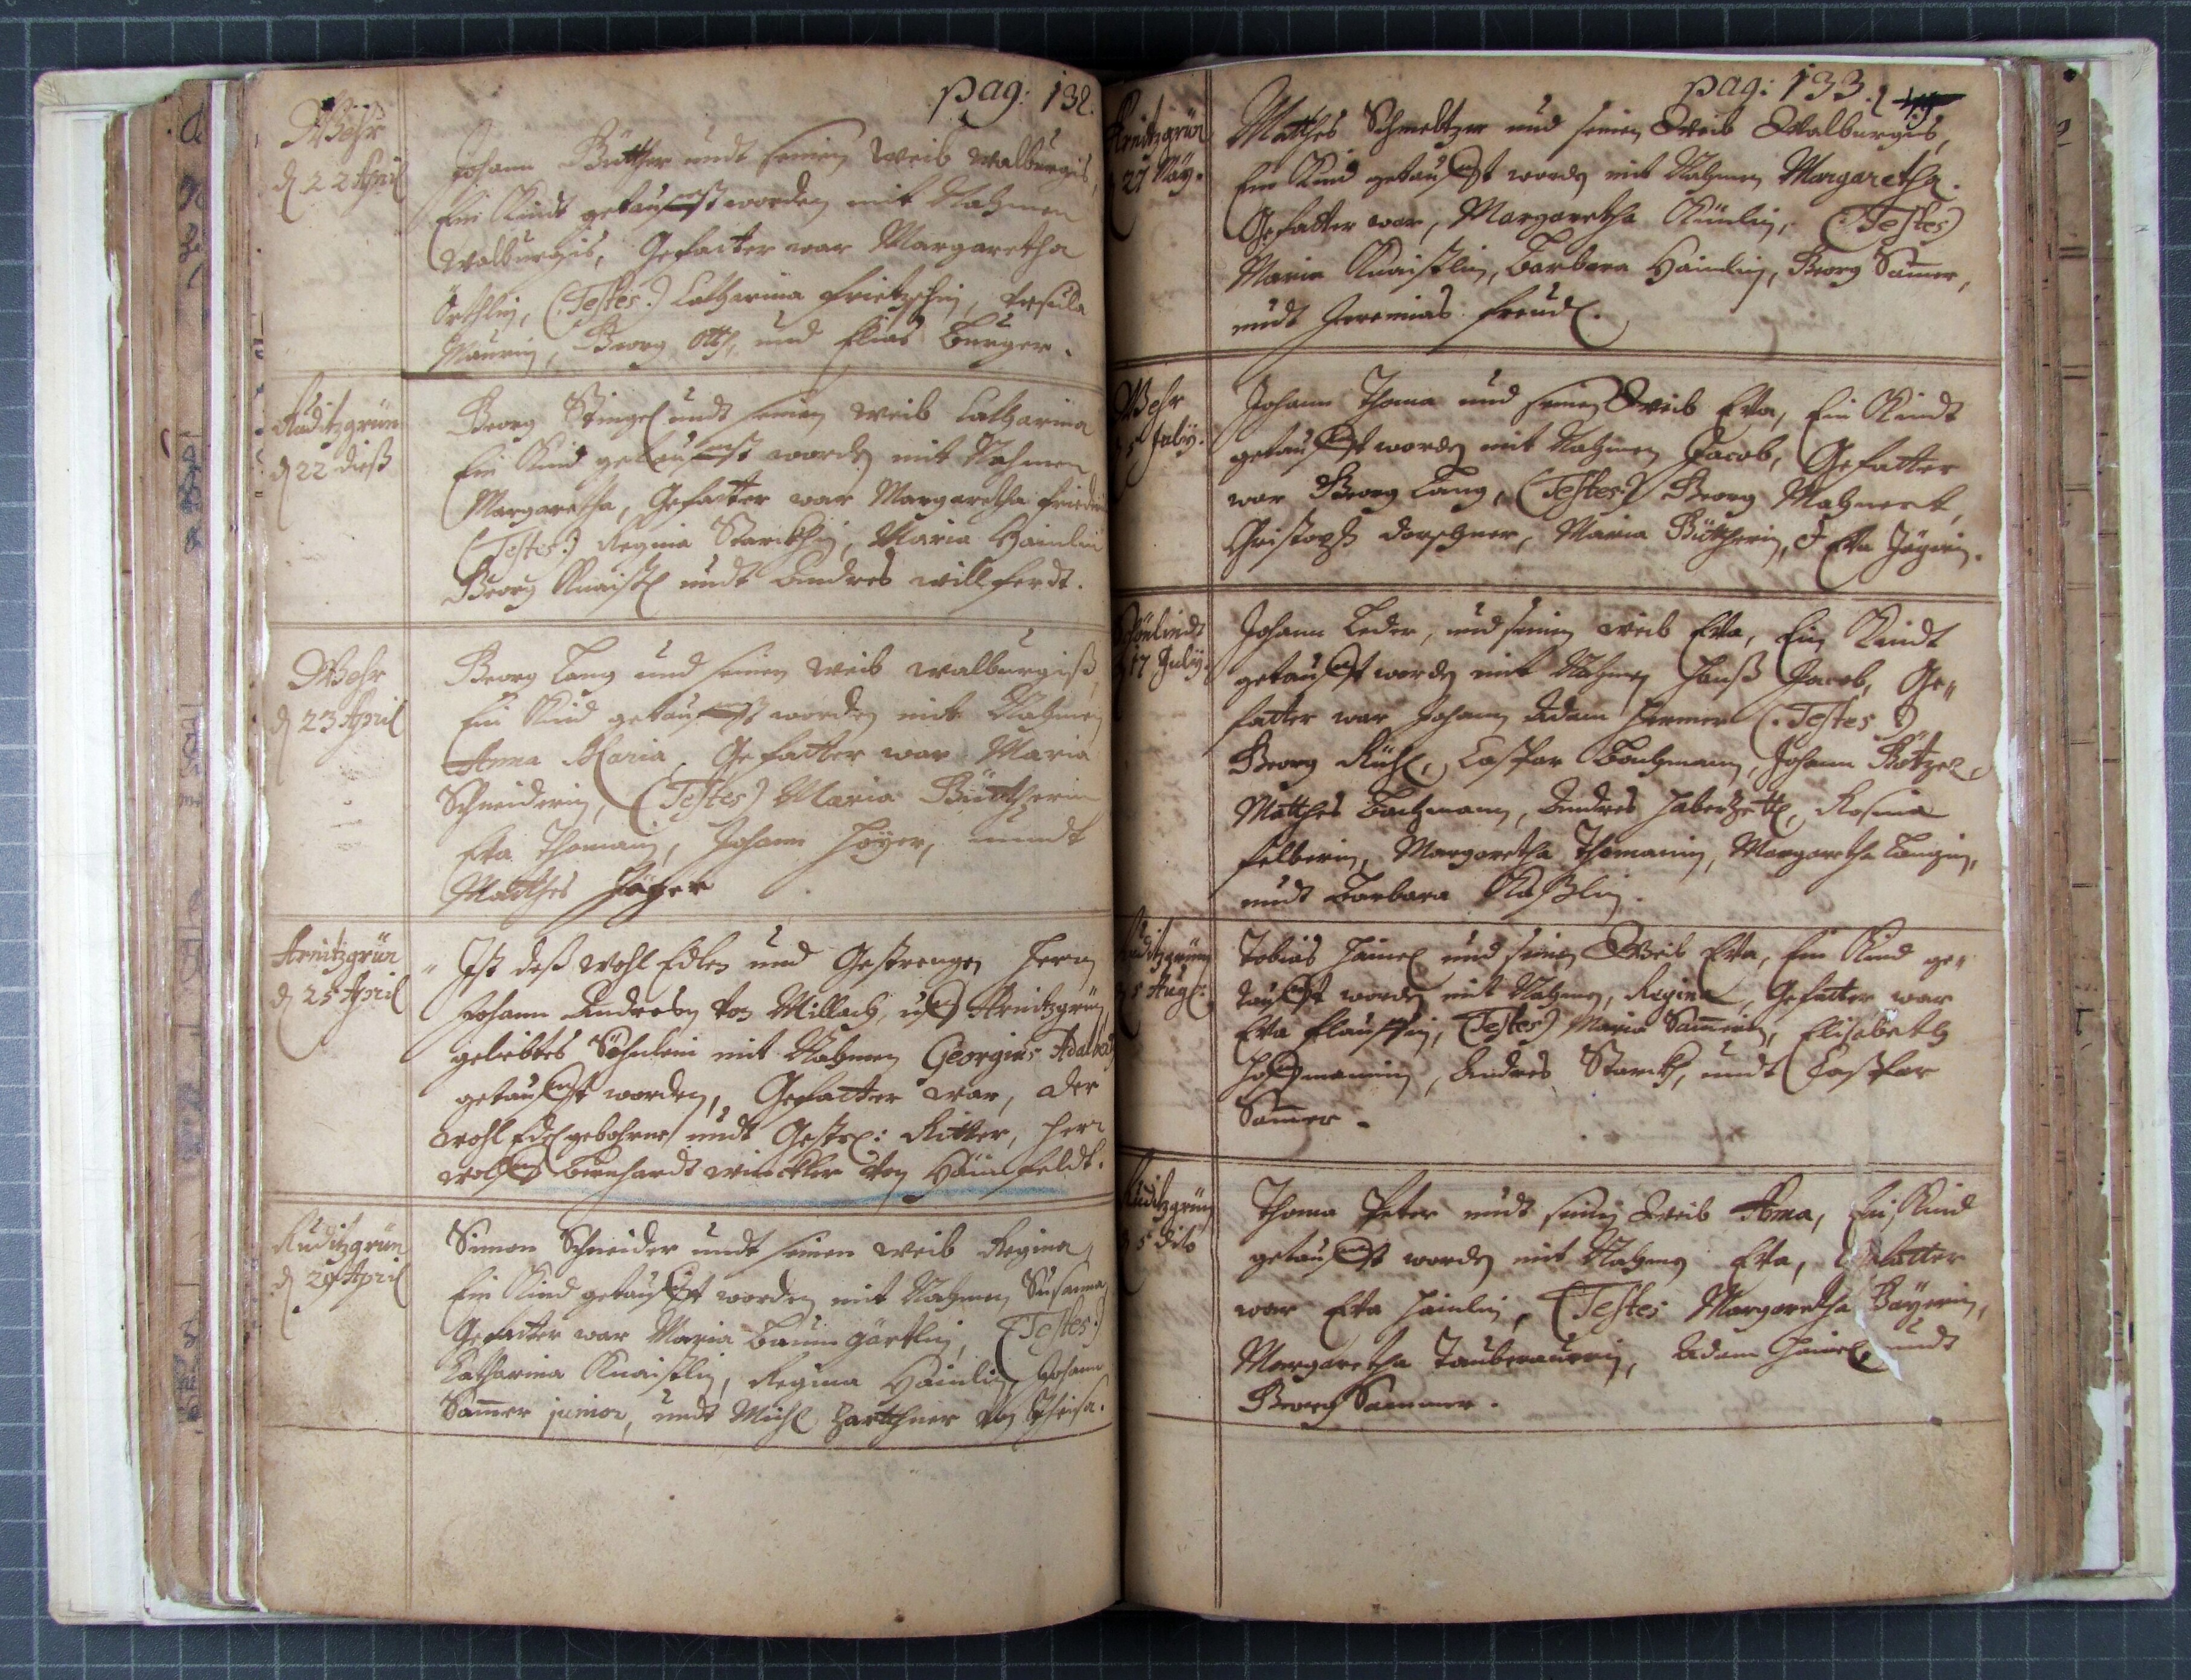 pag: 132.
Wehr
d 22 April
Johann Bütther undt seinen Weib Walburgis,
Ein Kindt getaufft worden mit Nahmen
Walburgis, Gefatter war Margaretha
(Testes:) Catharina Frietzschin, Ursula
Maurin, Georg Ott, und Elias Burger.
Ruditzgrün
d 22 dieß
Georg Stingel undt seinen weib Catharina
Ein Kind getaufft worden mit Nahmen
Margaretha, Gefatter war Margaretha
(Testes:) Regina Starckhin, Maria Hainlin
Georg Knaistl undt Andres Willferdt.
Wehr
d 23 April
Georg Lang und seinen weib walburgiß,
Ein Kind getaufft worden mit Nahmen
Anna Maria, Gefatter war Maria
Schneiderin, (Testes) Maria Büttherin
Eva Thomanin, Johann Höyer, unndt
Matthes Häger
Arnitzgrün
d 25 April
Ist deß Wohl Edlen und Gestrengen Herrn
Johann Andresen von Millach, uff Arnitzgrün
geliebtes Söhnlein mit Nahmen Georgius
getaufft worden, Gefatter war, der
Wohl Edlgebohrne undt Gestr: Ritter, Herr
Wolff Bernhardt Winckler von Häimfeldt.
Ruditzgrün
d 29 April
Simon Schneider undt seinen weib Regina,
Ein Kind getaufft worden mit Nahmen Susanna,
Gefatter war Maria Baumgärtlin, (Testes:)
Catharina Knaistlin, Regina Hainlin, Johann
Sammer junior, undt Michl Zartthner von
pag: 133.
Arnitzgrün
27 May.
Matthes Schmeltzer und seinen Weib Walburgis,
Ein Kind getaufft worden mit Nahmen Margaretha.
Gefatter war, Margaretha Künlin, (:Testes)
Maria Knaistlin, Barbara Hainlin, Georg Sammer,
undt Jeremias Freudl.
Wehr
5 July.
Johann Thoma und seinen Weib Eva, Ein Kindt
getaufft worden mit Nahmen Jacob, Gefatter
war Georg Lang, (Testes:) Georg Mahnert,
Christoph Dorschner, Maria Büttherin, & Eva Jägerin.
17 July.
Johann Leder, und seinen weib Eva, Ein Kindt
getaufft worden mit Nahmen Hanß Jacob, Ge„
fatter war Johann Adam Hermer (:Testes:)
Georg Kühl, Caspar Bachmann, Johann Kötzel,
Matthes Bachmann, Andres Haberzettl, Rosina
Felberin, Margaretha Thomanin, Margaretha Langin,
undt Barbara
Ruditzgrün
5 Aug:
Tobias Hainl und seinen Weib Eva, Ein Kind ge„
taufft worden mit Nahmen, Regina, Gefatter war
Eva (Testes) Maria Sammerin, Elisabeth
Hoffmannin, Andres Starckh, undt Caspar
Sammer.
Ruditzgrün
5 dito
Thoma Peter undt seinen Weib Anna, Ein Kind
getaufft worden mit Nahmen Eva, Gefatter
war Eva Hainlin, (Testes Margaretha Bäyerin,
Margaretha Taubenauerin, Adam Hainl, undt
Georg Sammer.